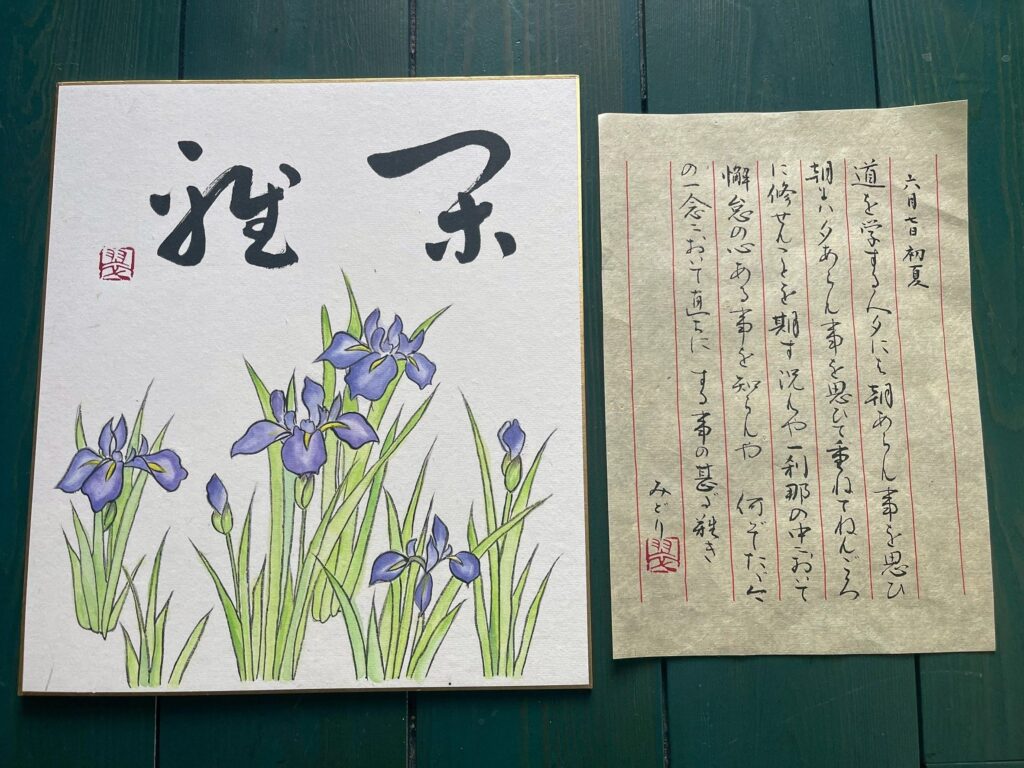 閑雅
翠
六月七日 初夏
道を学する人夕には朝あらん事を思ひ
朝にハ夕あらん事を思ひて重ねてねんごろ
に修せんことを期す況んや一刹那の中において
懈怠の心ある事を知らんや 何ぞたゞ今
の一念において直ちに する事の甚だ難き
みどり
翠